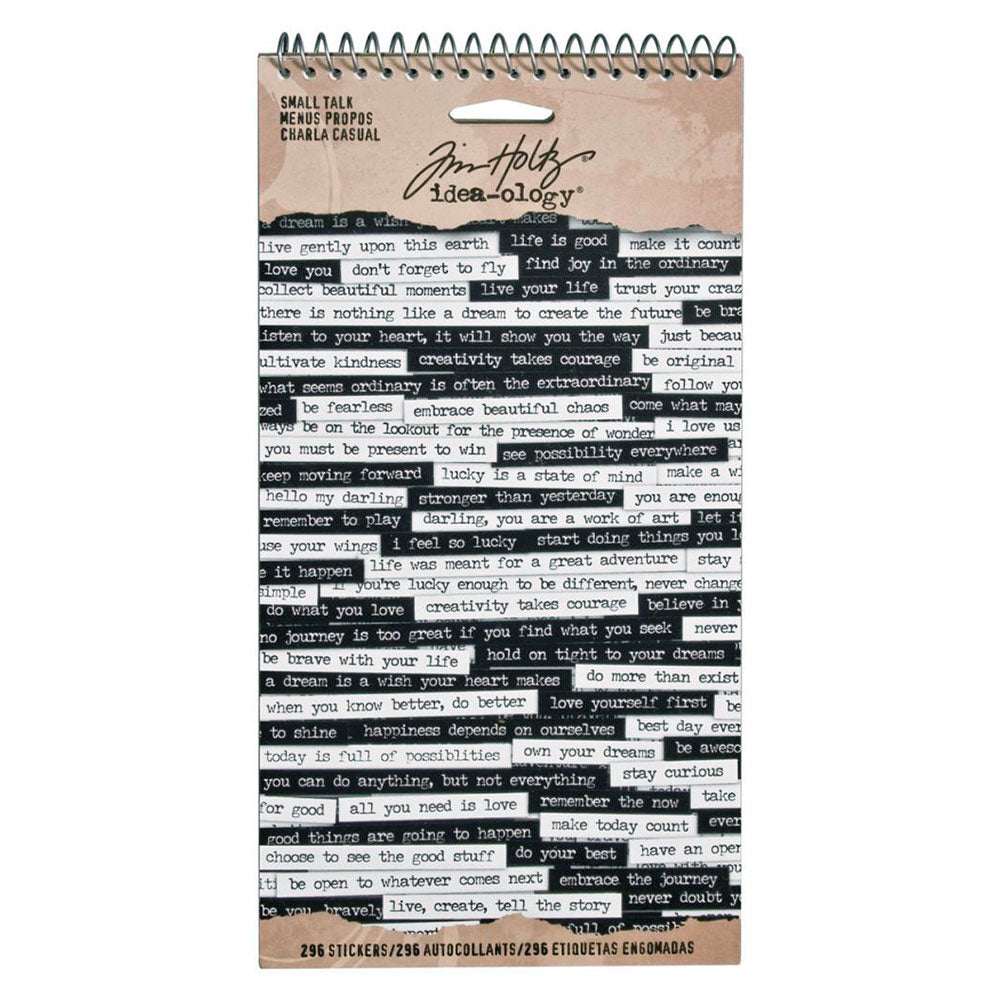 SMALL TALK
MENUS PROPOS
CHARLA CASUAL
Tim Holtz®
idea-ology®
a dream is a wish makes
live gently upon this earth life is good make it count
love you don't forget to fly find joy in the ordinary
collect beautiful moments live your life trust your craz
there is nothing like a dream to create the future be bra
isten to your heart, it will show you the way just becau
ultivate kindness creativity takes courage be original
what seems ordinary is often the extraordinary follow you
zed be fearless embrace beautiful chaos come what may
ways be on the lookout for the presence of wonder i love us
you must be present to win see possibility everywhere
keep moving forward lucky is a state of mind make a wi
hello my darling stronger than yesterday you are enoug
remember to play darling, you are a work of art let it
use your wings i feel so lucky start doing things you l
e it happen life was meant for a great adventure stay
simple if you're lucky enough to be different, never change
do what you love creativity takes courage believe in y
no journey is too great if you find what you seek never
be brave with your life hold on tight to your dreams
a dream is a wish your heart makes do more than exist
when you know better, do better love yourself first be
to shine happiness depends on ourselves best day ever
today is full of possiblities own your dreams be aweso
you can do anything, but not everything stay curious
for good all you need is love remember the now take
good things are going to happen make today count ever
choose to see the good stuff do your best have an open
iti be open to whatever comes next embrace the journey
be you, bravely live, create, tell the story never doubt y
mport full of possib
296 STICKERS/296 AUTOCOLLANTS/296 ETIQUETAS ENGOMADAS